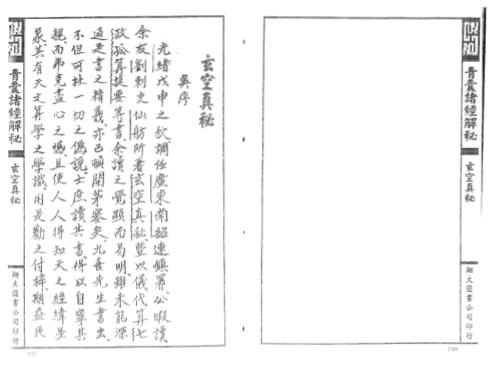 青囊諸經解秘
玄空真秘
翔大圖書公司印行
玄空真秘
吳序
光緒戊申之秋調任廣東南韶連鎮署公暇讀
余友劉刺史仙舫所著玄空真秘暨以儀代算七
政孤算提要等書余讀之覺顯而易明雖未能深
通是書之精義亦已頓開茅塞矣尤喜先生書出
不但可杜一切之偽說士庶讀其書得以自其
親而弗克盡心之憾且使人人得知天之經緯星
象其有天文算學之學識用是勸之付梓期益民
青囊諸經解秘
玄空真秘
翔大圖書公司印行